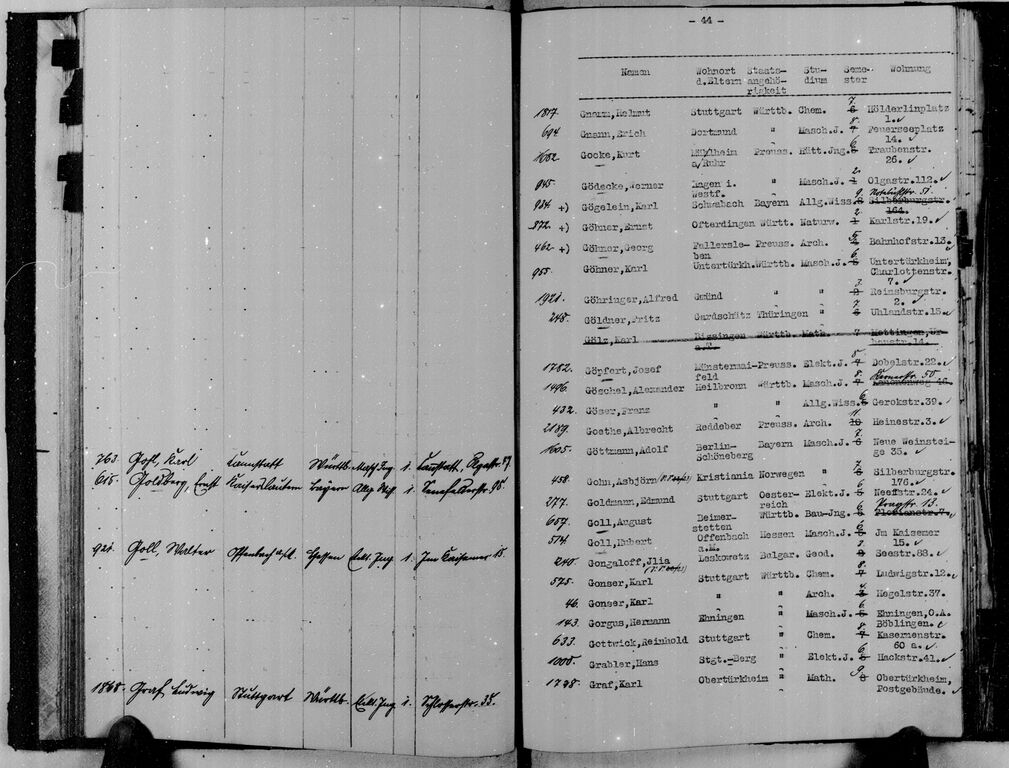 763. Gohl, Karl Cannstatt Württb. Masch. Ing. 1. Cannstatt,
615. Goldberg, Ernst Kaiserslautern Bayern Allg. Wiss. 1.
921. Goll, Walter Offenbach a/M. Hessen Elekt. Ing. 1. Im Kaisemer 15.
1868. Graf, Ludwig Stuttgart Württb. Elekt. Ing. 1. Schlosserstr. 35.
- 44 -
Namen Wohnort Staats- Stu- Seme- Wohnung
d.Eltern angehö- dium ster
rigkeit
7.
1817. Gnamm,Helmut Stuttgart Württb. Chem. 6 Hölderlinplatz
8. 1.
694. Gnann,Erich Dortmund " Masch.J. 7 Feuerseeplatz
14.
1652. Gocke,Kurt Mülheim Preuss. Hütt.Jng. Traubenstr.
a/Ruhr 26.
2.
945. Gödecke,Werner Hagen i. " Masch.J. 1 Olgastr.112.
Westf. 9. 51.
984 +) Gögelein,Karl Schwabach Bayern Allg.Wiss. 8 Silberburgstr.
2. 164.
872. +) Göhner,Ernst Ofterdingen Württ. Naturw. 1 Karlstr.19.
462 +) Göhner,Georg Fallersle- Preuss. Arch. Bahnhofstr.13.
ben 6.
955. Göhner,Karl Untertürkh.Württb. Masch.J. 5 Untertürkheim,
Charlottenstr.
3. 7.
1921. Göhringer,Alfred Gmünd " " 2 Reinsburgstr.
7. 2.
248. Göldner,Fritz Gardschütz Thüringen " 6 Uhlandstr.15.
Gölz,Karl Bissingen Württb. Math. 7 Mettingen,Ur-
a.T. banstr.14.
8.
1782. Göpfert,Josef Münstermai-Preuss. Elekt.J. 7 Dobelstr.22.
feld 8. Kernerstr. 50
1496. Göschel,Alexander Heilbronn Württb. Masch.J. 7 Kanonenweg 46.
6
432. Göser,Franz " " Allg.Wiss. 5 Gerokstr.39.
11.
2189. Goethe,Albrecht Reddeber Preuss. Arch. 10 Heinestr.3.
7
1605. Göttmann,Adolf Berlin- Bayern Masch.J. 6 Neue Weinstei-
Schöneberg ge 35.
7
458. Gohn,Asbjörn Kristiania Norwegen " 6 Silberburgstr.
6 176.
277. Goldmann,Edmund Stuttgart Oester- Elekt.J. 5 Neeffstr.24.
reich 6 Pragstr. 13.
659. Goll,August Beimer- Württb. Bau-Jng. 5 Florianstr.7.
stetten 6
514. Goll,Hubert Offenbach Hessen Masch.J. 5 Jm Kaisemer
a.M. 15.
240. Gongaloff,Jlia Leskowetz Bulgar. Geod. 8 Seestr.88.
8.
575. Gonser,Karl Stuttgart Württb. Chem. 7 Ludwigstr.12.
4.
46. Gonser,Karl " " Arch. 3 Hegelstr.37.
6
143. Gorgus,Hermann Ehningen " Masch.J. 5 Ehningen,O.A.
8 Böblingen.
633. Gottwick,Reinhold Stuttgart " Chem. 7 Kasernenstr.
6 60 a.
1008. Grabler,Hans Stgt.-Berg " Elekt.J. 5 Hackstr.41.
9
1798. Graf,Karl Obertürkheim " Math. 8 Obertürkheim,
Postgebäude.